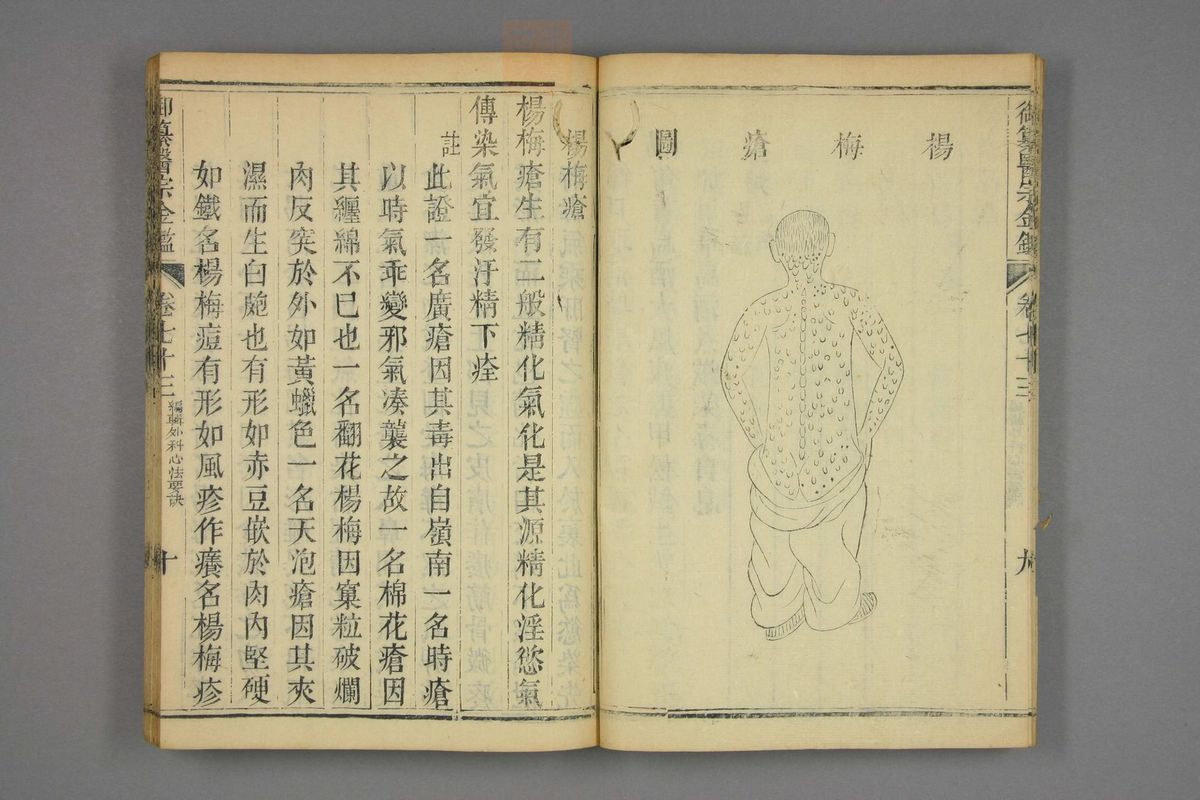 御纂醫宗金鑑
卷七十三
九
楊梅瘡圖
楊梅瘡
楊梅瘡生有二般精化氣化是其源精化淫慾氣
傳染氣宜發汗精下痊
註
此證一名廣瘡因其毒出自嶺南一名時瘡
以時氣乖變邪氣湊襲之故一名棉花瘡因
其纏綿不已也一名翻花楊梅因窠粒破爛
肉反突於外如黃蠟色一名天泡瘡因其夾
濕而生白皰也有形如赤豆嵌於肉內堅硬
如鐵名楊梅痘有形如風疹作癢名楊梅疹
御纂醫宗金鑑
卷七十三
編輯外科心法要訣
十